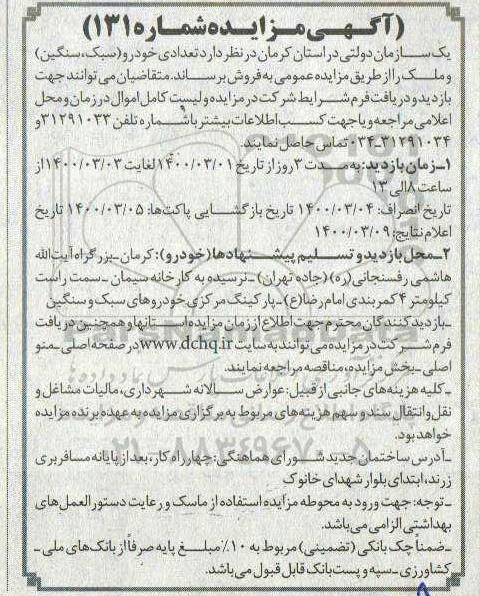 (آگهی مزایده شماره ۱۳۱)
یک سازمان دولتی در استان کرمان در نظر دارد تعدادی خودرو (سبک، سنگین)
و ملک را از طریق مزایده عمومی به فروش برساند. متقاضیان می توانند جهت
بازدید و دریافت فرم شرایط شرکت در مزایده و لیست کامل اموال در زمان و محل
اعلامی مراجعه و یا جهت کسب اطلاعات بیشتر با شماره تلفن ۳۱۲۹۱۰۳۳ و
۰۳۴-۳۱۲۹۱۰۳۴ تماس حاصل نمایند.
۱ـ زمان بازدید: به مدت ۳ روز از تاریخ ۱۴۰۰/۰۳/۰۱ لغایت ۱۴۰۰/۰۳/۰۳ از
ساعت ۸ الی ۱۳
تاریخ انصراف: ۱۴۰۰/۰۳/۰۴ تاریخ بازگشایی پاکت‌ها: ۱۴۰۰/۰۳/۰۵ تاریخ
اعلام نتایج: ۱۴۰۰/۰۳/۰۹
۲ـ محل بازدید و تسلیم پیشنهادها (خودرو): کرمان ـ بزرگراه آیت الله
هاشمی رفسنجانی (ره) (جاده تهران) ـ نرسیده به کارخانه سیمان ـ سمت راست
کیلومتر ۴ کمربندی امام رضا (ع) ـ پارکینگ مرکزی خودروهای سبک و سنگین
ـ بازدیدکنندگان محترم جهت اطلاع از زمان مزایده استانها و همچنین دریافت
فرم شرکت در مزایده می توانند به سایت www.dchq.ir در صفحه اصلی ـ منو
اصلی ـ بخش مزایده، مناقصه مراجعه نمایند.
ـ کلیه هزینه های جانبی از قبیل: عوارض سالانه شهرداری، مالیات مشاغل و
نقل و انتقال سند و سهم هزینه های مربوط به برگزاری مزایده به عهده برنده مزایده
خواهد بود.
ـ آدرس ساختمان جدید شورای هماهنگی: چهار راه کار، بعد از پایانه مسافربری
زرند، ابتدای بلوار شهدای خانوک
ـ توجه: جهت ورود به محوطه مزایده استفاده از ماسک و رعایت دستورالعمل های
بهداشتی الزامی می باشد.
ـ ضمناً چک بانکی (تضمینی) مربوط به ۱۰٪ مبلغ پایه صرفاً از بانک های ملی ـ
کشاورزی ـ سپه و پست بانک قابل قبول می باشد.
۰۲۱-۸۸۳۴۹۶۷۰-۵